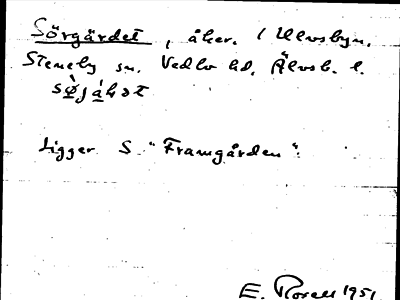 Sörgärdet, åker. i Ulvsbyn.
Steneby sn. Vedbo hd. Älvsb. l.
Ligger S "Framgården".
E. Rosell 1951.